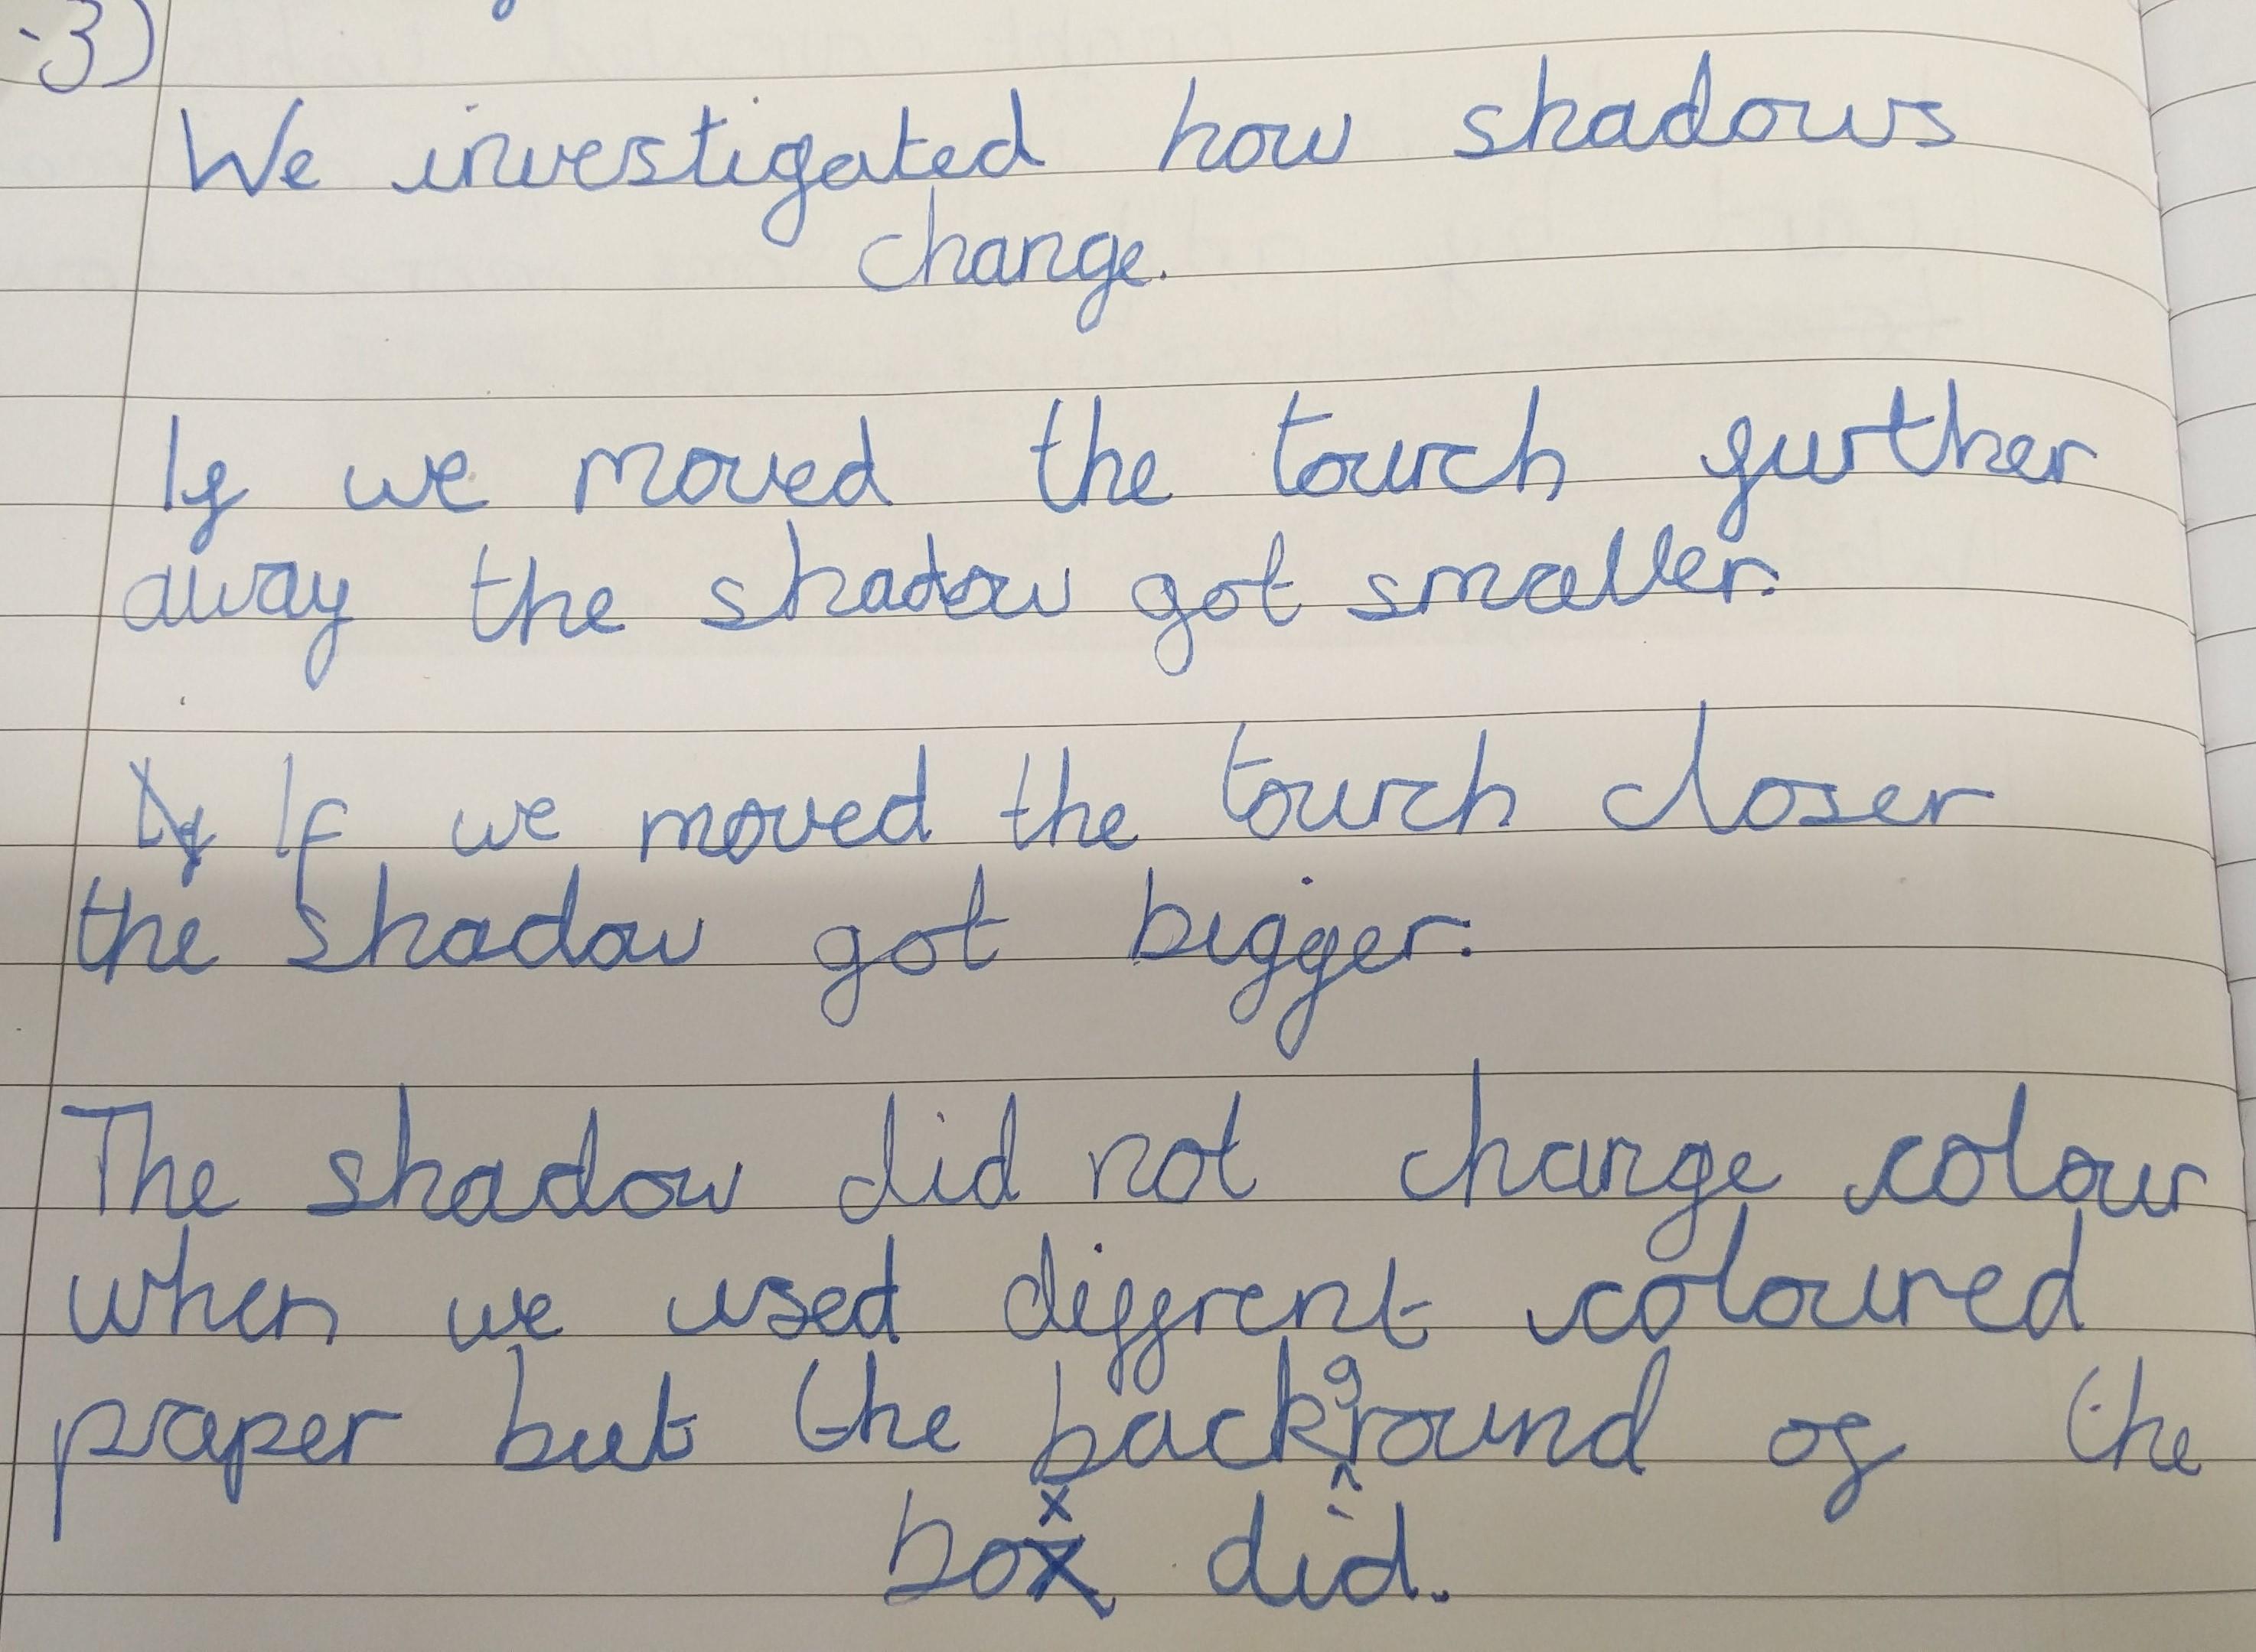 3)
We investigated how shadows
change.
If we moved the tourch further
away the shadow got smaller.
If If we moved the tourch closer
the shadow got bigger.
The shadow did not change colour
when we used diffrent coloured
paper but the background of the
box did.